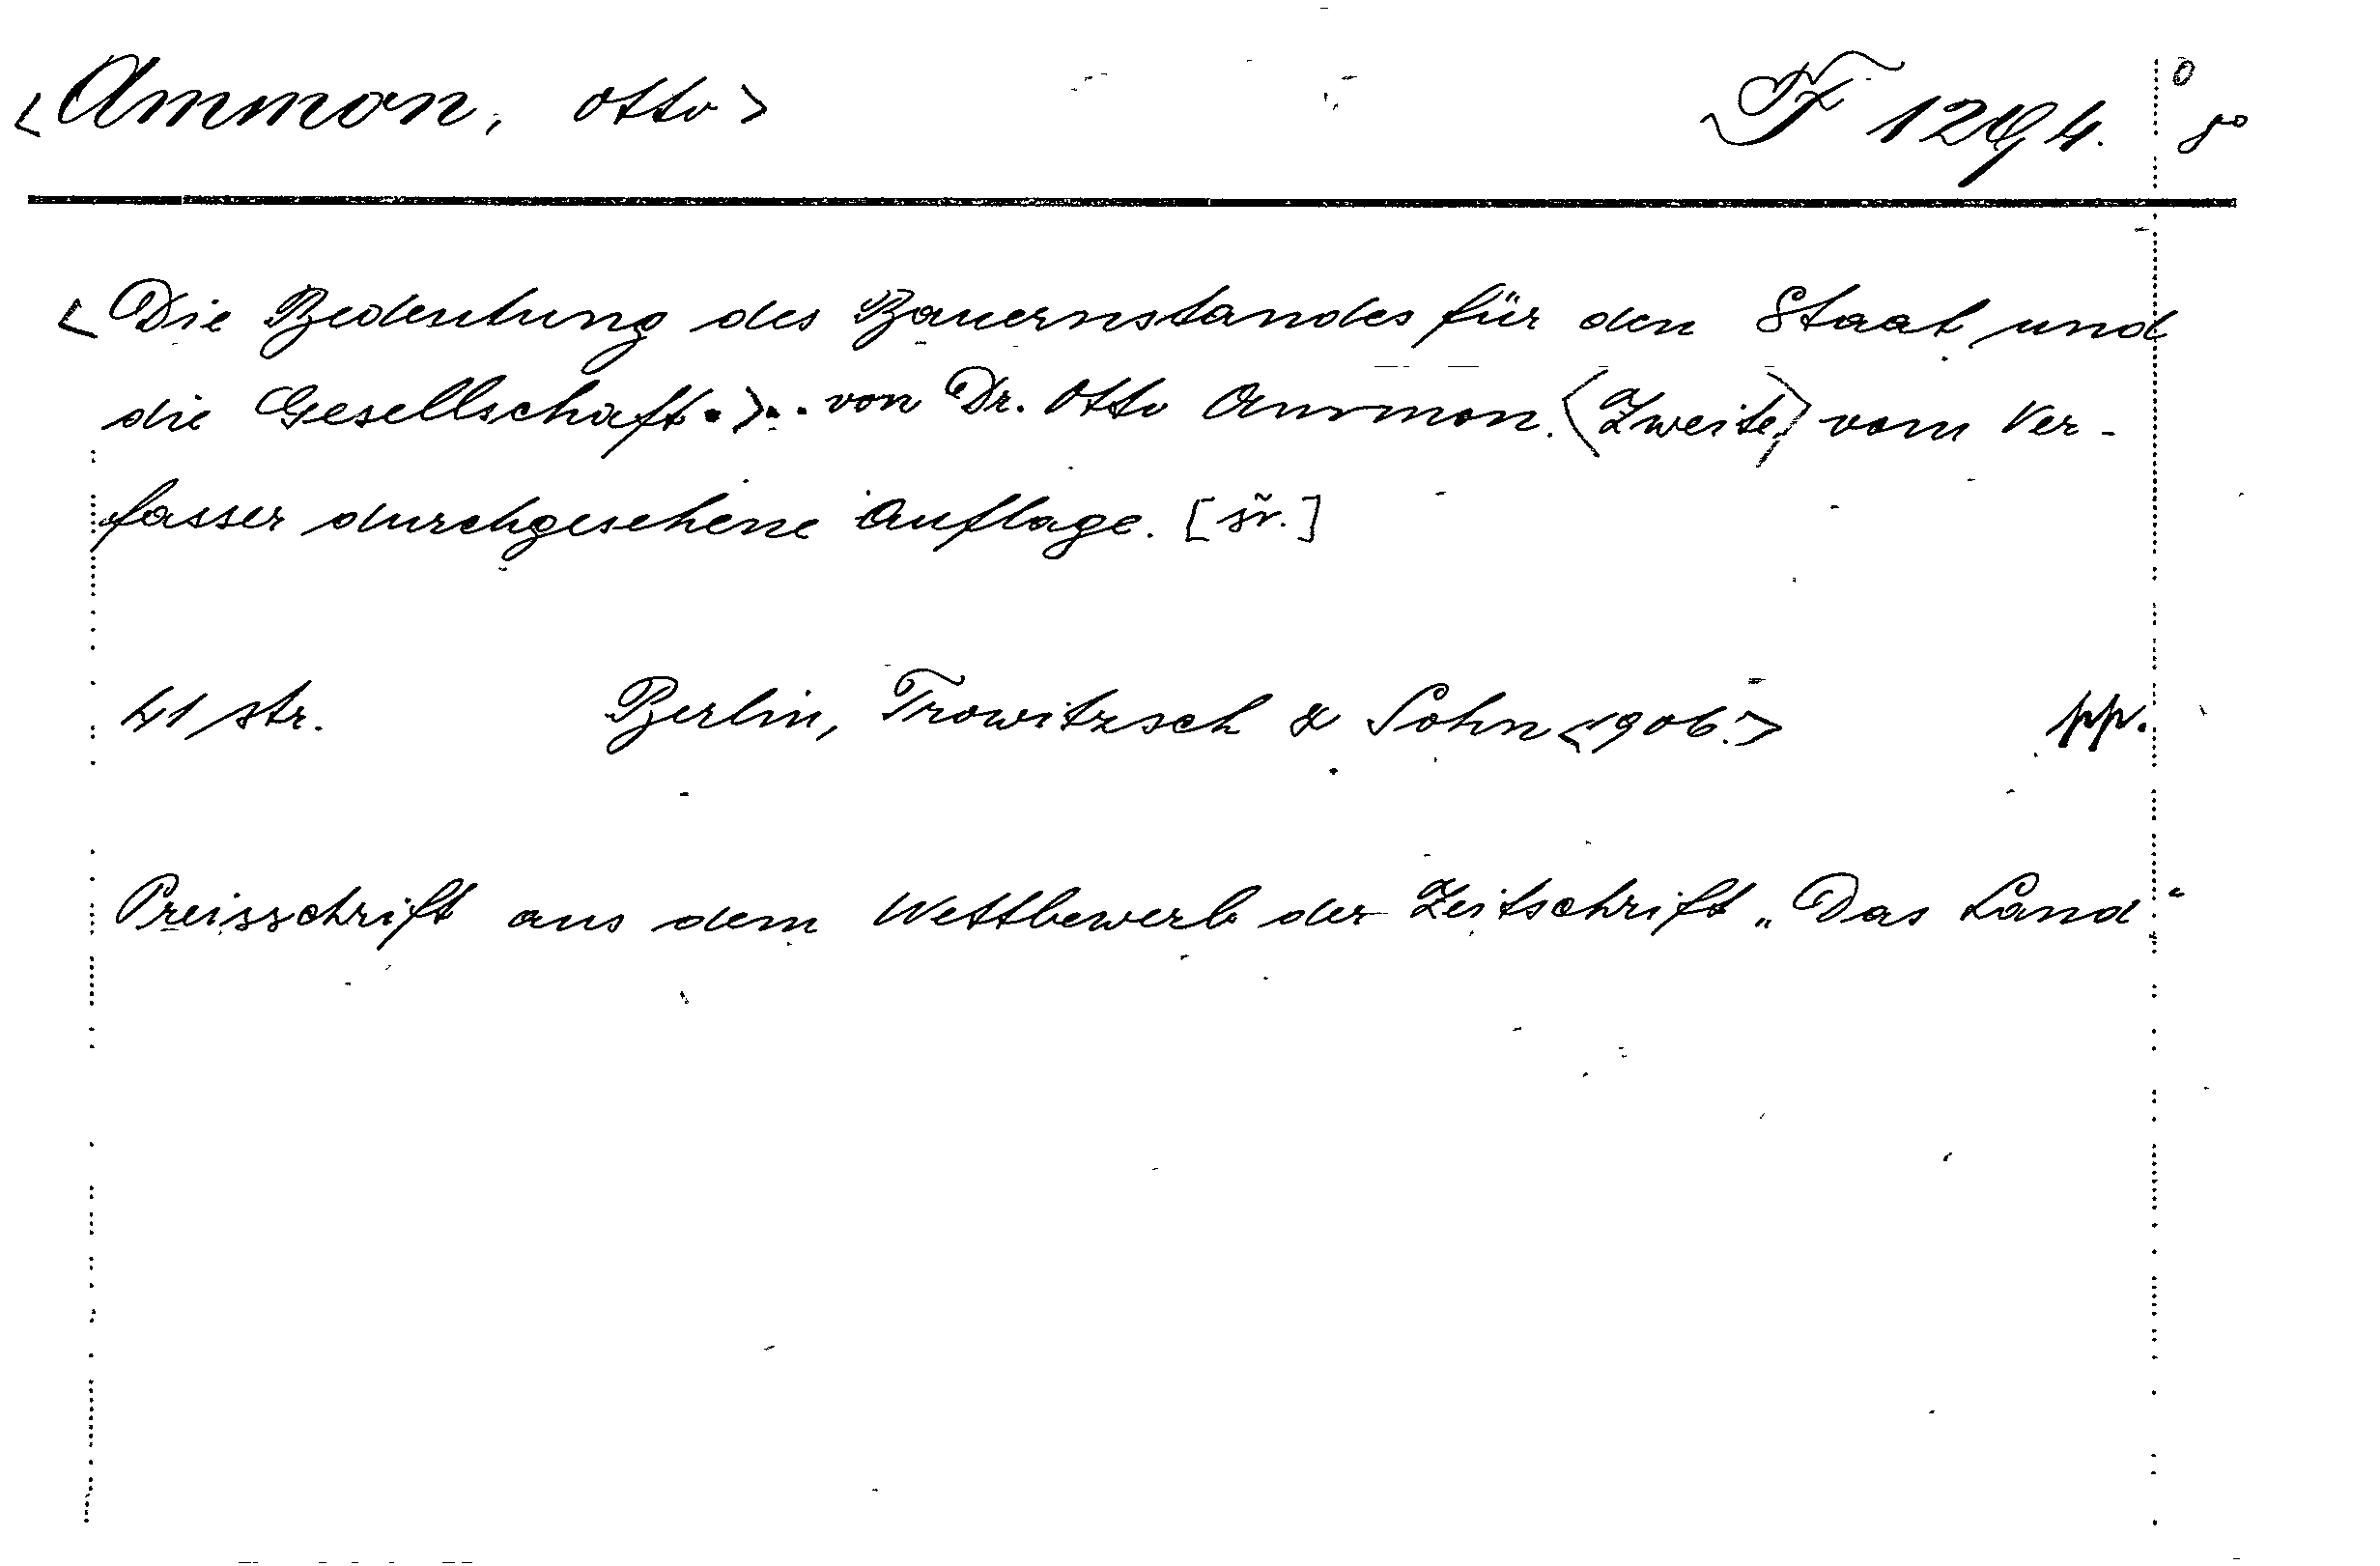 <Ammon, Otto> F 1294. 8°
<Die Bedeutung des Bauernstandes für den Staat und
die Gesellschaft.>.. von Dr. Otto Ammon. (Zweite,) vom Ver-
fasser durchgesehene Auflage. [šv.]
41 str. Berlin, Trowitzsch & Sohn <1906.> pp.
Preisschrift aus dem Wettbewerb der Zeitschrift „Das Land“